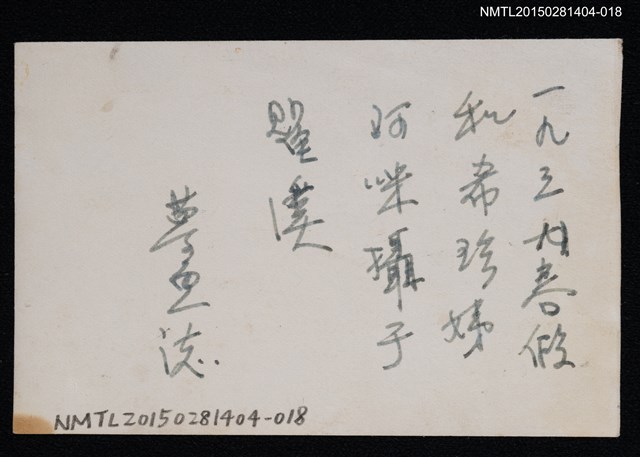 NMTL20150281404-018
一九三廿春假
和希珍姊
阿咪攝于
溪
誌.
NMTL20150281404-018